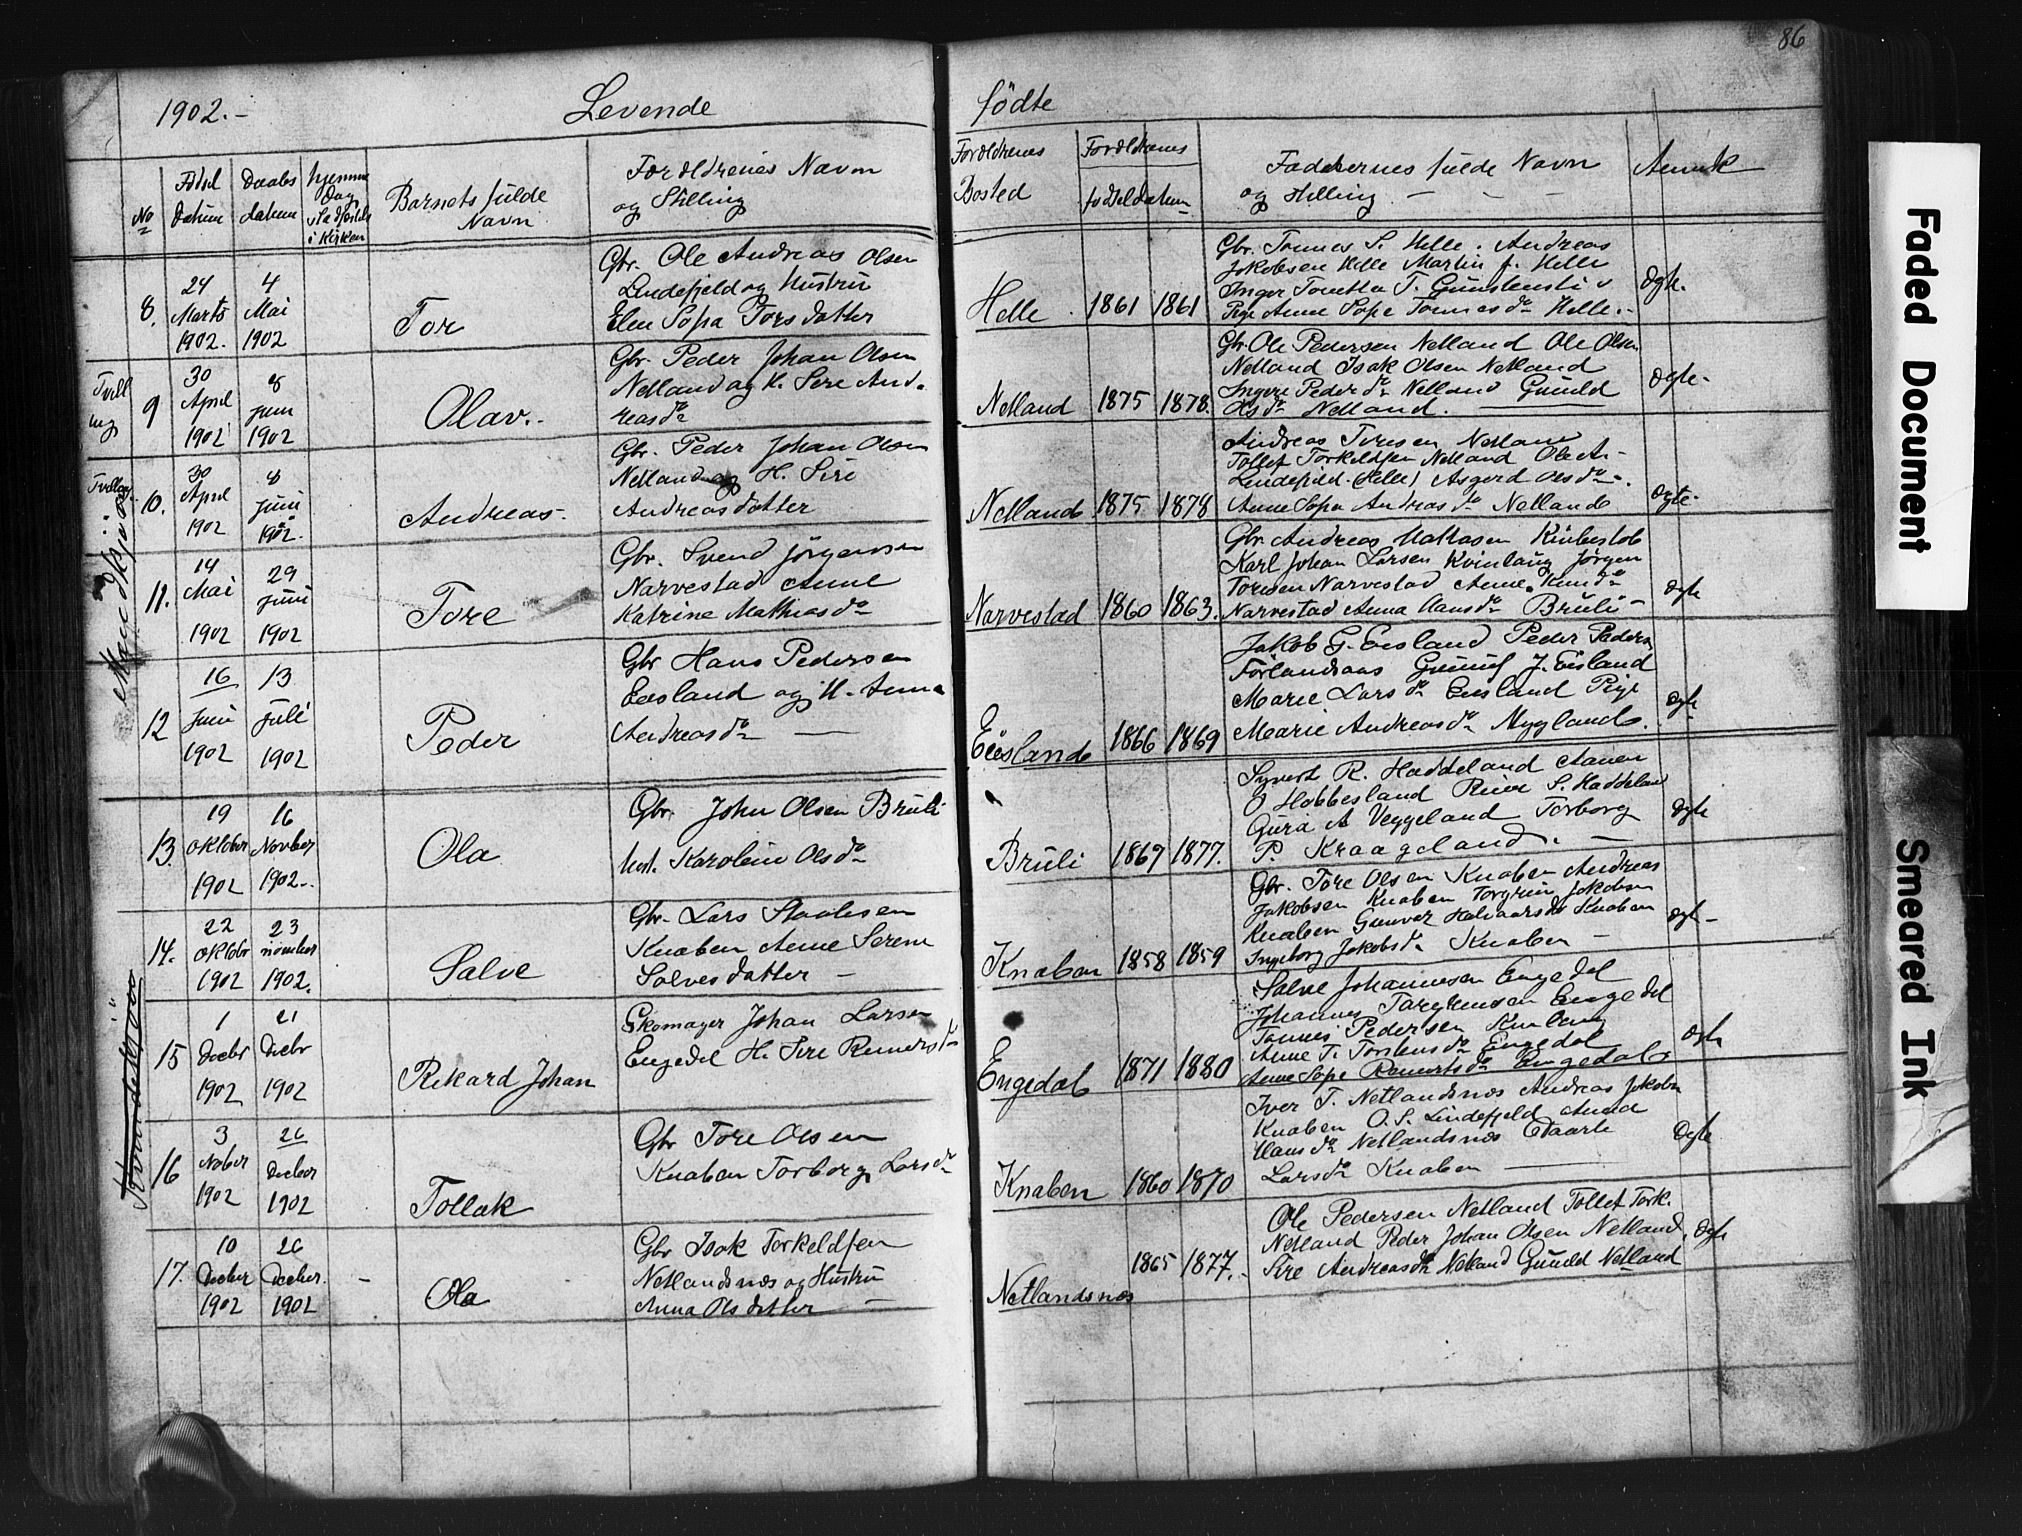 86
1902.-
Levende
fødte
No
Fødsel datum
Daabs datum
hjemme Dag, Stadfæstels i Kirken
Barnets fulde Navn
Forældrenes Navn og Stilling
Forældrenes Bosted
Forældrenes fødselsdatum
Faddernes fulde Navn og Stilling
Anmk
Mandkjøn
8.
24 Marts 1902.
4 Mai 1902
Tor
Gbr. Ole Andreas Olsen
Lindefjeld og Hustru
Elen Sofia Torsdatter
Helle
1861
1861
Gbr. Tønnes S. Helle. Andreas
Jakobsen Helle Martin J. Helle
Inger Tonetta T.
Pige Anne Sofie Tønnesdr Helle.-
Ægte.
Tvilling
9
30 April 1902
8 Juni 1902
Olav.-
Gbr. Peder Johan Olsen
Netland og H. Sire And-
reasdr
Netland
1875
1878.
Gbr. Ole Pedersen Netland Ole Olsen
Netland Isak Olsen Netland
Ingere Pedersdr Netland Gunild
Olsdr Netland.
Ægte-
Tvilling
10.
30 April 1902
8 Juni 1902.
Andreas-
Gbr. Peder Johan Olsen
Netland og H. Sire
Andreasdatter
Netland
1875
1878
Andreas Toresen Netland
Tollef Torkeldsen Netland Ole A-
Lindefjeld (Helle) Asgerd Olsdr.
Anne Sofia Andreasdr Netland
Ægte-
11.
14 Mai 1902
29 Juni 1902
Tore
Gbr. Svend Jørgensen
Narvestad Anne
Katrine Mathiasdr
Narvestad
1860
1863.
Gbr. Andreas Mathasen
Karl Johan Larsen Kvinlaug Jørgen
Toresen Narvestad Anne Knudsdr
Narvestad Anna Hansdr Bruli-
Ægte
12
16 Juni 1902
13 Juli 1902
Peder
Gbr Hans Pedersen
Eiesland og H. Anna
Andreasdr
Eiesland
1866
1869
Jakob G. Eiesland Peder Peders
Førlandsaas Gunuf J. Eiesland
Marie Larsdr Eiesland Pige
Marie Andreasdr Mygland.
Ægte
13.
19 Oktober 1902
16 Novber 1902.
Ola
Gbr. John Olsen Bruli
Hust. Karoline Olsdr
Bruli
1867
1877.
Syvert R. Haddeland Aanen
O Hobbesland Reier S. Haddeland
Guria A Veggeland Torborg
P. Kraageland.
Ægte
14.
22 Oktobr 1902
23 november 1902.
Salve
Gbr. Lars Staalesen
Knaben Anne Serine
Salvesdatter
Knaben
1858
1859
Gbr. Tore Olsen Knaben Andreas
Jakobsen Knaben Torgrim Jakobsen
Knaben Gunver Halvaarsdr Knaben
Ingeborg Jakobsdr Knaben
Ægte-
Kvindekjøn
15
1 Decbr 1902
21 Decbr 1902
Rikard Johan
Skomager Johan Larsen
Engedal H. Sire Reinersdr
Engedal
1871
1880
Salve Johannesen Engedal
Johannes Targjemsen Engedal
Tønnes Pedersen Kvinlaug
Anne T. Torstensdr Engedal
Anne Sofie Reinertsdr Engedal
Ægte
16
3 Nober 1902
26 Decber 1902
Tollak
Gbr Tore Olsen
Knaben Torborg Larsdr
Knaben
1860
1870
Iver T. Netlandsnæs Andreas Jakobn
Knaben O. S. Lindefjeld Anna
Hansdr Netlandsnæs Taarle
Larsdr Knaben
Ægte
17.
10 Decber 1902
26 Decber. 1902
-
Ola
Gbr Isak Torkeldsen
Netlandsnæs og Hustru
Anna Olsdatter
Netlandsnæs
1865
1877.-
Ole Pedersen Netland Tollef Tork.
Netland Peder Johan Olsen Netland,
Sire Andreasdr Netland Gunild Netland
Ægte
Faded Document
Smeared Ink